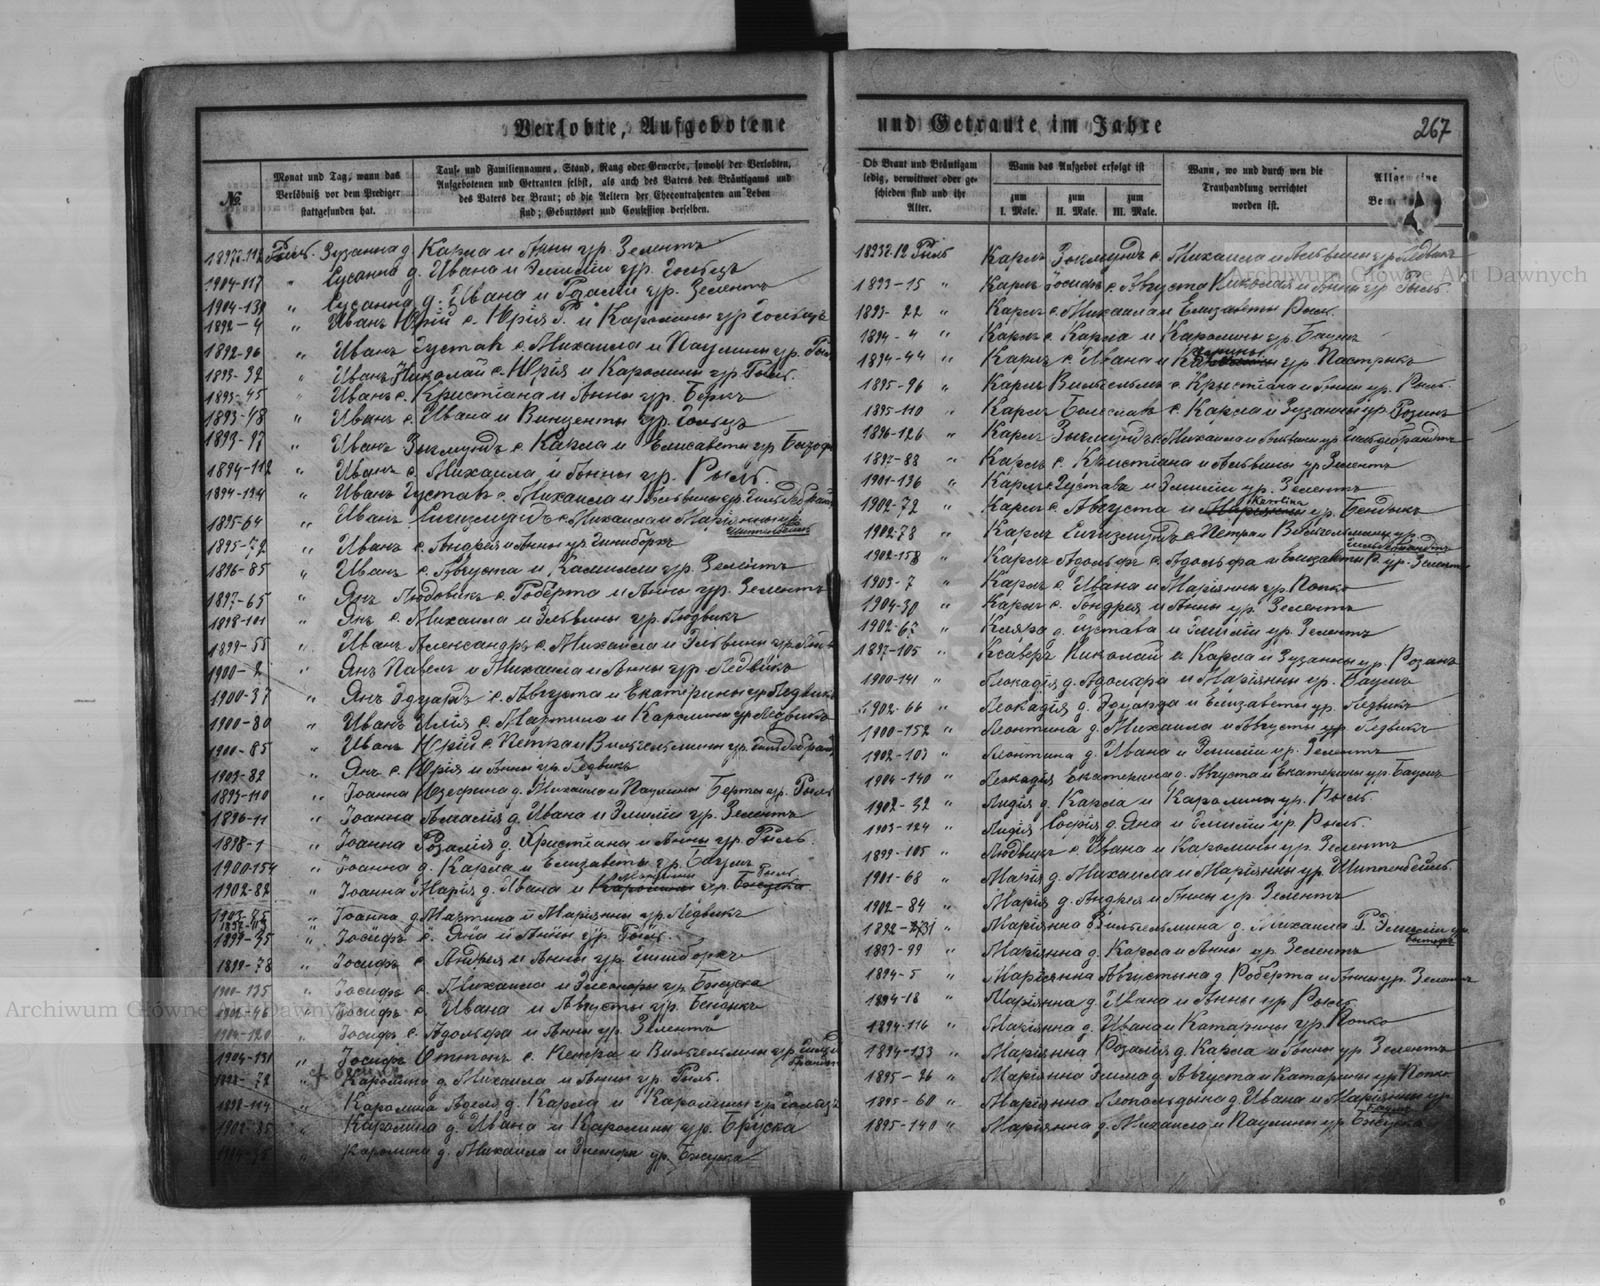 Verlobte, Aufgebotene
und Getraute im Jahre
267
№.
Monat und Tag, wann das
Verlöbniß vor dem Prediger
stattgefunden hat.
Tauf- und Familiennamen, Stand, Rang oder Gewerbe, sowohl der Verlobten,
Aufgebotenen und Getrauten selbst, als auch des Vaters des Bräutigams und
des Vaters der Braut; ob die Aeltern der Ehecontrahenten am Leben
sind; Geburtsort und Confession derselben.
Ob Braut und Bräutigam
ledig, verwittwet oder ge-
schieden sind und ihr
Alter.
Wann das Aufgebot erfolgt ist
zum
I. Male.
zum
II. Male.
zum
III. Male.
Wann, wo und durch wen die
Trauhandlung verrichtet
worden ist.
Allgemeine
Рыль. Зузанна д Карла и Анны ур. Зелентъ
1904-117 " Сусанна д. Ивана и Эмиліи ур. Гольцъ
1904-139 " Сусанна д. Ивана и Розаліи ур. Зелентъ
1892-4 " Иванъ Юрій с. Юрія и Каролины ур Гольцъ
1892-96 " Иванъ Густавъ с. Михаила и Паулины ур.
1893-32 " Иванъ Николай с. Юрія и Каролины ур Рыль.
1893-45 " Иванъ с. Кристіана и Анны ур.
1893-48 " Иванъ с. Ивана и Винценты ур. Гольцъ
1893-97 " Иванъ Зыгмундъ с. Карла и Елисаветы ур
1894-112 " Иванъ с. Михаила и Анны ур. Рыль.
1894-134 " Иванъ Густавъ с. Михаила и Альвины ур.
1895-64 " Иванъ Сигизмундъ с. Михаила и Маріанны ур
1895-72 " Иванъ с. Андрея и Анны ур
1896-85 " Иванъ с. Августа и Камиллы ур. Зелентъ
1897-65 " Янъ Людовикъ с. Роберта и Анны ур. Зелентъ
1898-101 " Янъ с. Михаила и Эльвины ур. Людвикъ
1899-55 " Иванъ Александръ с. Михаила и Эльвины ур.
1900-2 " Янъ Павелъ и Михаила и Анны ур. Ледвикъ
1900-37 " Янъ Эдуардъ с. Августа и Екатерины ур Ледвикъ
1900-80 " Иванъ Илія с. Мартина и Каролины ур Ледвикъ
1900-85 " Иванъ Юрій с. Петра и Вильгельмины ур.
1903-82 " Янъ с. Юрія и Анны ур. Ледвикъ
1893-110 " Іоанна Юзефина д. Михаила и Паулины Берты ур. Рыль
1896-11 " Іоанна Амалія д. Ивана и Эмиліи ур. Зелентъ
1898-1 " Іоанна Розалія д. Христіана и Анны ур. Рыль.
1900-154 " Іоанна д. Карла и Елизаветы ур. Баумъ
1902-82 " Іоанна Марія д. Ивана и Каролины ур.
1903-85 " Іоанна д Мартина и Маріанны ур Ледвикъ
1899-35 " Іосифъ с. Яна и Анны ур. Рыль.
1899-78 " Іосифъ с. Андрея и Анны ур.
1900-135 " Іосифъ с. Михаила и Элеоноры ур.
1902-46 " Іосифъ с. Ивана и Августы ур.
1904-120 " Іосифъ с. Адольфа и Анны ур. Зелентъ
1904-131 " Іосифъ Оттонъ с. Петра и Вильгельмины ур
Каролина д. Михаила и Анны ур. Рыль.
1898-114 " Каролина Адела д. Карла и Каролины ур Гольцъ
1902-85 " Каролина д. Ивана и Каролины ур. Бруска
Каролина д. Михаила и
Рыль Карлъ Зыгмундъ с. Михаила и Альвины ур Ледвикъ
1893-15 " Карлъ Іосифъ с. Августа Николая и Анны ур Рыль.
1893-22 " Карлъ с. Михаила и Елизаветы Рыль.
1894-4 " Карлъ с. Карла и Каролины ур. Баумъ
1894-44 " Карлъ с. Ивана и ур Пастрыкъ
1895-96 " Карлъ Вильгельмъ с. Крыстіана и Анны ур. Рыль.
1895-110 " Карлъ Болеславъ с. Карла и Зузанны ур Розинъ
1896-126 " Карлъ Зыгмундъ с. Михаила и Альвины ур Гильдебрандтъ
1897-88 " Карлъ с. Кристіана и Альвины ур Зелентъ
1901-136 " Карлъ с Густава и Эмиліи ур. Зелентъ
1902-72 " Карлъ с. Августа и Маріанны Karolina ур. Бендыкъ
1902-78 " Карлъ Сигизмундъ с. Петра и Вильгельмины ур.
Гильдебрандтъ
1902-158 " Карлъ Адольфъ с. Адольфа и Елизаветы Р. ур. Зелентъ
1903-7 " Карлъ с. Ивана и Маріанны ур. Попко
1904-30 " Карлъ с. Андрея и Анны ур. Зелентъ
1902-67 " Клара д. Густава и Эмиліи ур. Зелентъ
1897-105 " Ксаверъ Николай с. Карла и Зузанны ур. Розинъ
1900-141 " Леокадія д. Адольфа и Маріанны ур. Баумъ
1902-66 " Леокадія д. Эдуарда и Елизаветы ур. Ледвикъ
1900-152 " Леонтина д. Михаила и Августы ур Ледвикъ
1902-103 " Леонтина д. Ивана и Эмиліи ур. Зелентъ
1904-140 " Леокадія Екатерина д. Августа и Екатерины ур. Баумъ
1902-32 " Лидія д. Карла и Каролины ур. Рыль.
1903-124 " Лидія Софія д. Яна и Эмиліи ур. Рыль.
1899-105 " Людвикъ с Ивана и Каролины ур. Зелентъ
1901-68 " Марія д. Михаила и Маріанны ур. Шиттенбейль.
1902-84 " Марія д. Андрея и Анны ур. Зелентъ
Маріанна Вильгельмина д. Михаила Р. Эмиліи ур
1893-99 " Маріанна д. Карла и Анны ур. Зелентъ
1894-5 " Маріанна Августина д Роберта и Анны ур. Зелентъ
1894-18 " Маріанна д Ивана и Анны ур Рыль.
1894-116 " Маріанна д. Ивана и Катарины ур. Попко
1894-133 " Маріанна Розалія д. Карла и Анны ур Зелентъ
1895-26 " Маріанна Эмма д Августа и Катарины ур Попко.
1895-60 " Маріанна Леопольдына д. Ивана и Маріанны ур
1895-140 " Маріанна д. Михаила и Паулины ур
Archiwum Główne Akt Dawnych
Archiwum Główne Akt Dawnych